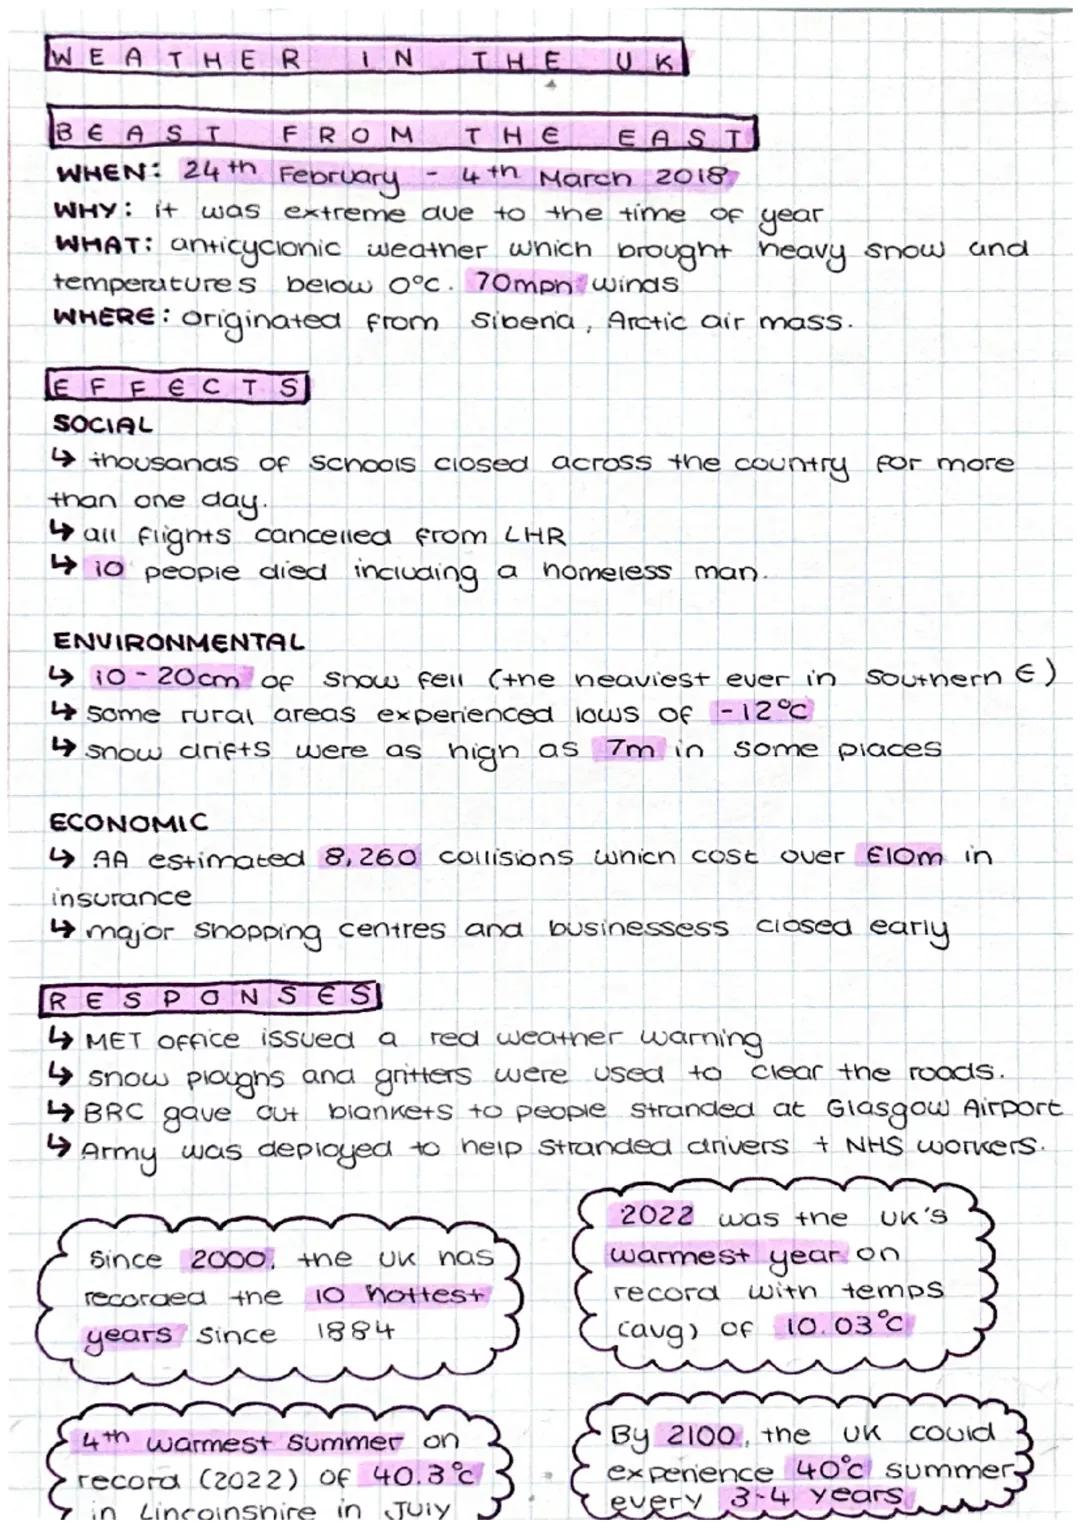 WEATHER IN THE UK
BEAST FROM THE EAST
WHEN: 24th February - 4th March 2018
WHY: it was extreme due to the time of year
WHAT: anticyclonic weather which brought heavy snow and
temperatures below 0°C. 70mph winds
WHERE: originated from Siberia, Arctic air mass.
EFFECTS
SOCIAL
↳ thousands of schools closed across the country for more
than one day.
↳ all flights cancelled from LHR
↳ 10 people died including a homeless man.
ENVIRONMENTAL
↳ 10-20cm of snow fell (the heaviest ever in southern E)
↳ some rural areas experienced lows of -12°C
↳ snow drifts were as high as 7m in some places
ECONOMIC
↳ AA estimated 8,260 collisions which cost over £10m in
insurance
↳ major shopping centres and businessess closed early
RESPONSES
↳ MET office issued a red weather warning
↳ snow ploughs and gritters were used to clear the roads.
↳ BRC gave out blankets to people stranded at Glasgow Airport
↳ Army was deployed to help stranded drivers + NHS workers.
Since 2000, the UK has
recorded the 10 hottest
years since 1884
2022 was the UK's
warmest year on
record with temps
(avg) of 10.03°C
4th warmest summer on
record (2022) of 40.3°C
in Lincolnshire in July
By 2100, the UK could
experience 40°C summer
every 3-4 years